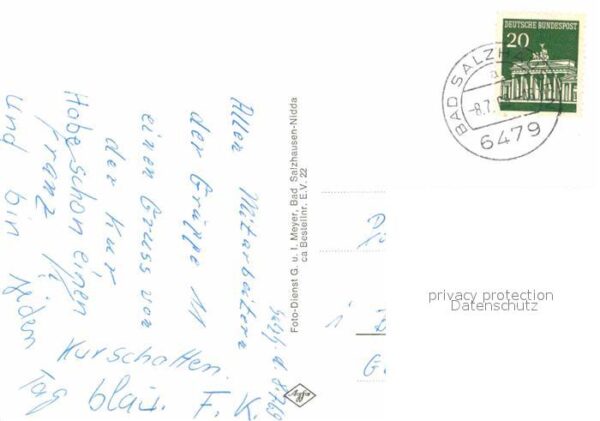 Salzh. d. 8.7.69
Allen Mitarbeitern
der Gruppe 11
einen Gruss von
der Kur
Habe schon einen
Kurschatten.
und bin jeden
Tag blau. F. K.
Franz K
Foto-Dienst G. u. I. Meyer, Bad Salzhausen-Nidda
ca Bestellnr. E.V. 22
Agfa
DEUTSCHE BUNDESPOST
20
BAD SALZHA
a
-8.7.
6479
privacy protection
Datenschutz
G